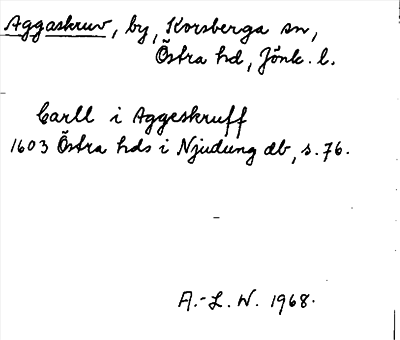 Aggaskruv, by, Korsberga sn,
Östra hd, Jönk. l.
Carll i Aggeskruff
1603 Östra hds i Njudung db, s. 76.
A.-L. W. 1968.